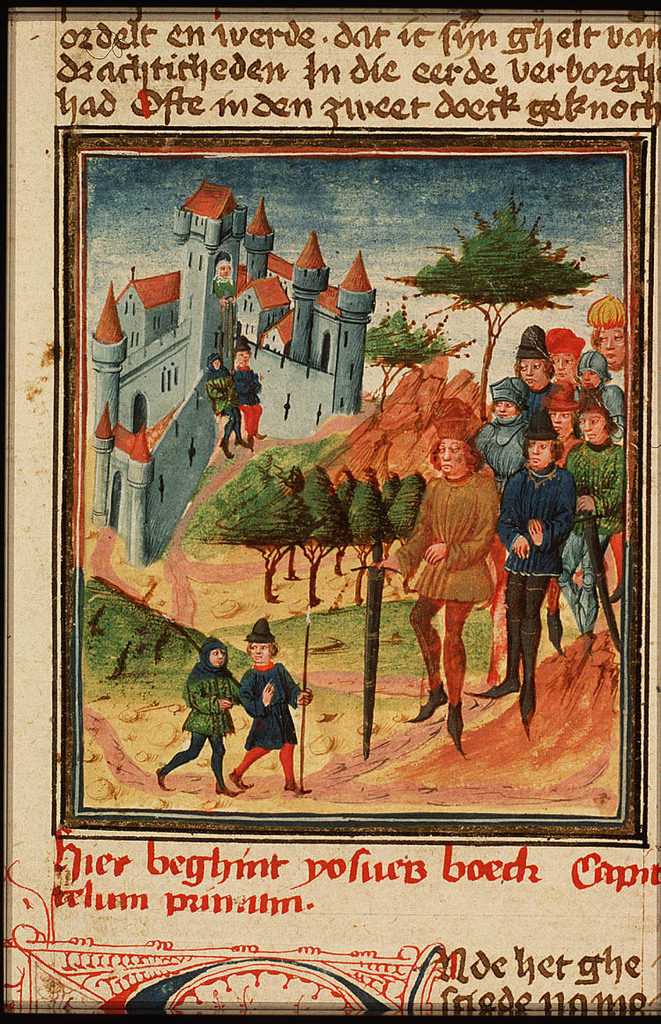 ordelt en werde. dat ic sijn ghelt van
drachticheden In die eerde verborghe
had Ofte in den zweet doeck geknoch
Hier beghint yosues boeck Capit
telum primum.
Nde het ghe
sciede na me